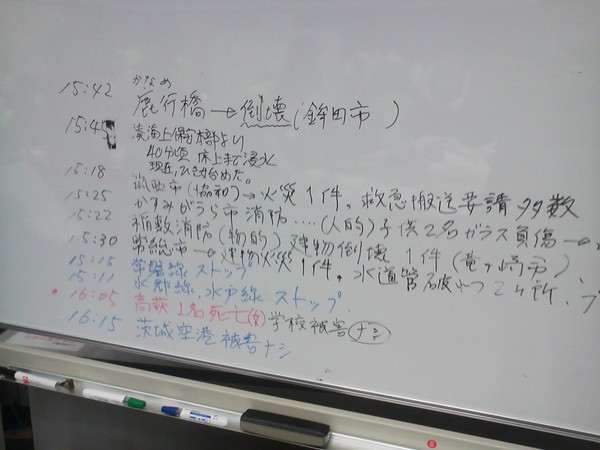 かなめ
15:42 鹿行橋→倒壊(鉾田市)
15:45 海上保安本部より
40分頃 床上まで浸水
現在、ひき始めた。
15:18 筑西市(協和)→火災1件。救急搬送要請多数
15:25 かすみがうら市消防‥‥(人的)子供2名ガラス負傷→
15:22 稲敷消防(物的)建物倒壊 1件(竜ヶ崎市)、
15:30 常総市→建物火災1件。水道管破レツ2ヶ所、ブ
15:15 常磐線ストップ
15:11 水郡線、水戸線 ストップ
16:05 高萩 1名死亡(女)学校被害ナシ
16:15 茨城空港被害ナシ